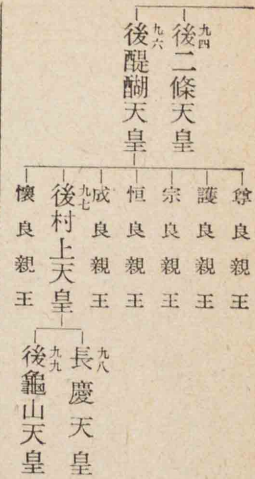 九四
後二條天皇
九六
後醍醐天皇
尊良親王
護良親王
宗良親王
恒良親王
成良親王
九七
後村上天皇
懷良親王
九八
長慶天皇
九九
後龜山天皇